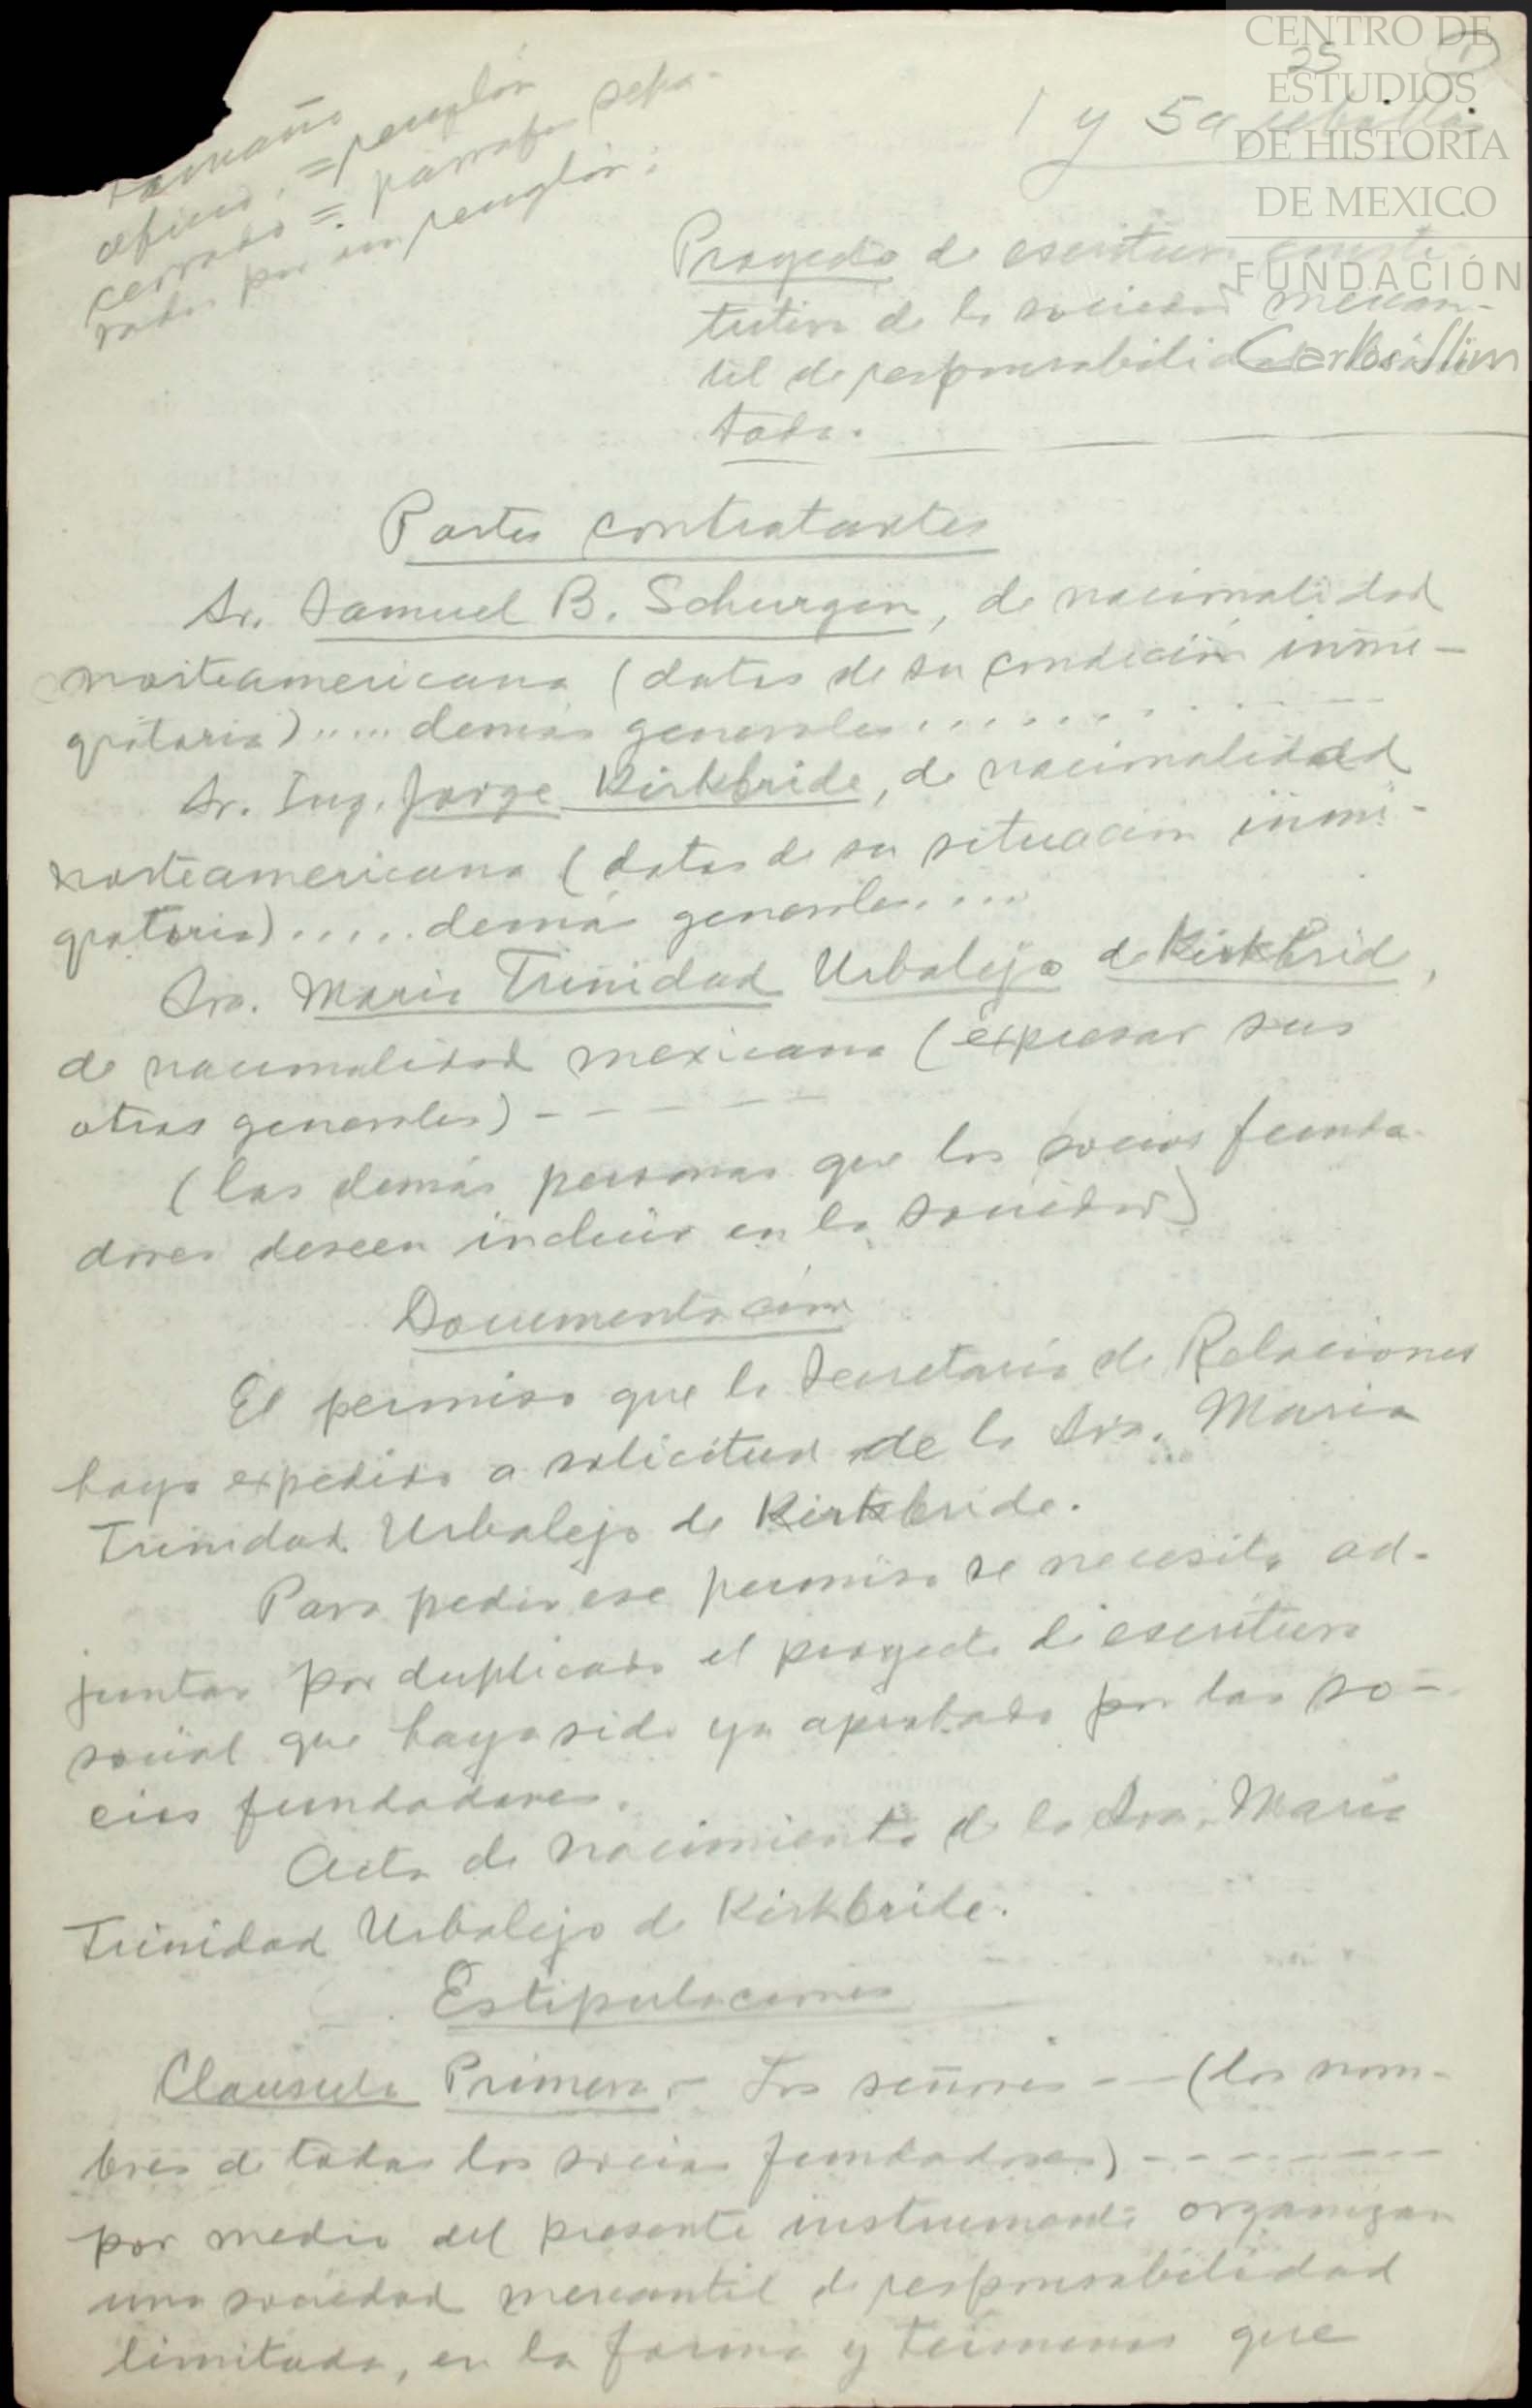 CENTRO DE
ESTUDIOS
DE HISTORIA
DE MEXICO
FUNDACIÓN
Carlos Slim
25
1
tamaño
oficio, = renglón
cerrado = párrafos sepa-
rados por un renglón:
1 y 5
Proyecto de escritura consti-
tutiva de la sociedad mercan-
til de responsabilidad
tada.
Partes contratantes
Sr. Samuel B. Schurgin, de nacionalidad
norteamericana (datos de su condición inmi-
gratoria)..... demás generales..........
Sr. Ing. Jorge Kirkbride, de nacionalidad
norteamericana (datos de su situación inmi-
gratoria)..... demás generales....
Sra. Maria Trinidad Urbalejo de Kirkbride,
de nacionalidad mexicana (expresar sus
otras generales) - - - - - -
(las demás personas que los socios funda-
dores deseen incluir en la sociedad)
Documentación
El permiso que la Secretaría de Relaciones
haya expedido a solicitud de la Sra. Maria
Trinidad Urbalejo de Kirkbride.
Para pedir ese permiso se necesita ad-
juntar por duplicado el proyecto de escritura
social que haya sido ya aprobado por los so-
cios fundadores.
Acta de nacimiento de la Sra. Maria
Trinidad Urbalejo de Kirkbride.
Estipulaciones
Clausula Primera.- Los señores - - (los nom-
bres de todos los socios fundadores) - - - - - - -
por medio del presente instrumento organizan
una sociedad mercantil de responsabilidad
limitada, en la forma y terminos que